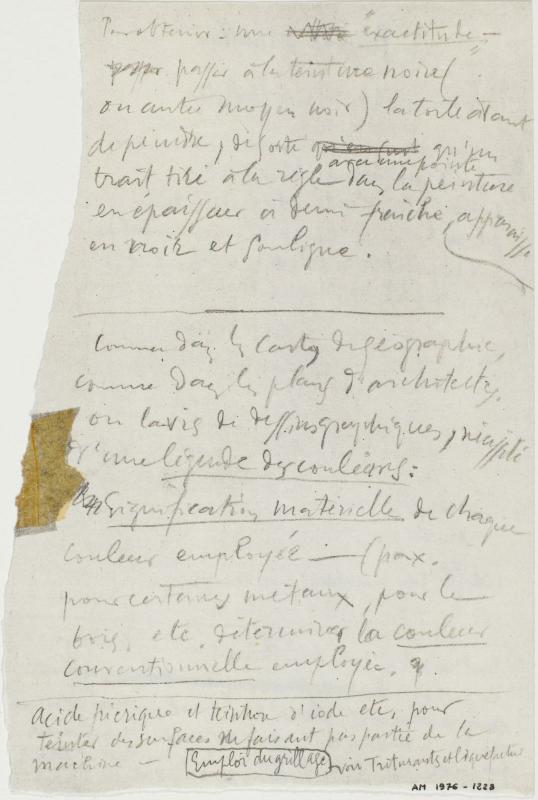 Pour obtenir : une "exactitude" —
passer à la teinture noire (
ou autre moyen noir) la toile avant
de peindre, de sorte qu'un
avec une pointe
trait tiré à la règle dans la peinture
en épaisseur à demi fraîche, apparaisse
en noir et souligne.
Comme dans les cartes de géographie,
comme dans les plans d'architectes,
ou lavis de dessins graphiques, nécessité
d'une légende des couleurs :
Signification matérielle de chaque
couleur employée — (p. ex.
pour certains métaux, pour le
bois, etc. déterminer la couleur
conventionnelle employée.
Acide picrique et teinture d'iode etc, pour
teinter des surfaces ne faisant pas partie de la
machine — Emploi du grillage voir Triturants et liquéfacteur
AM 1976-1223